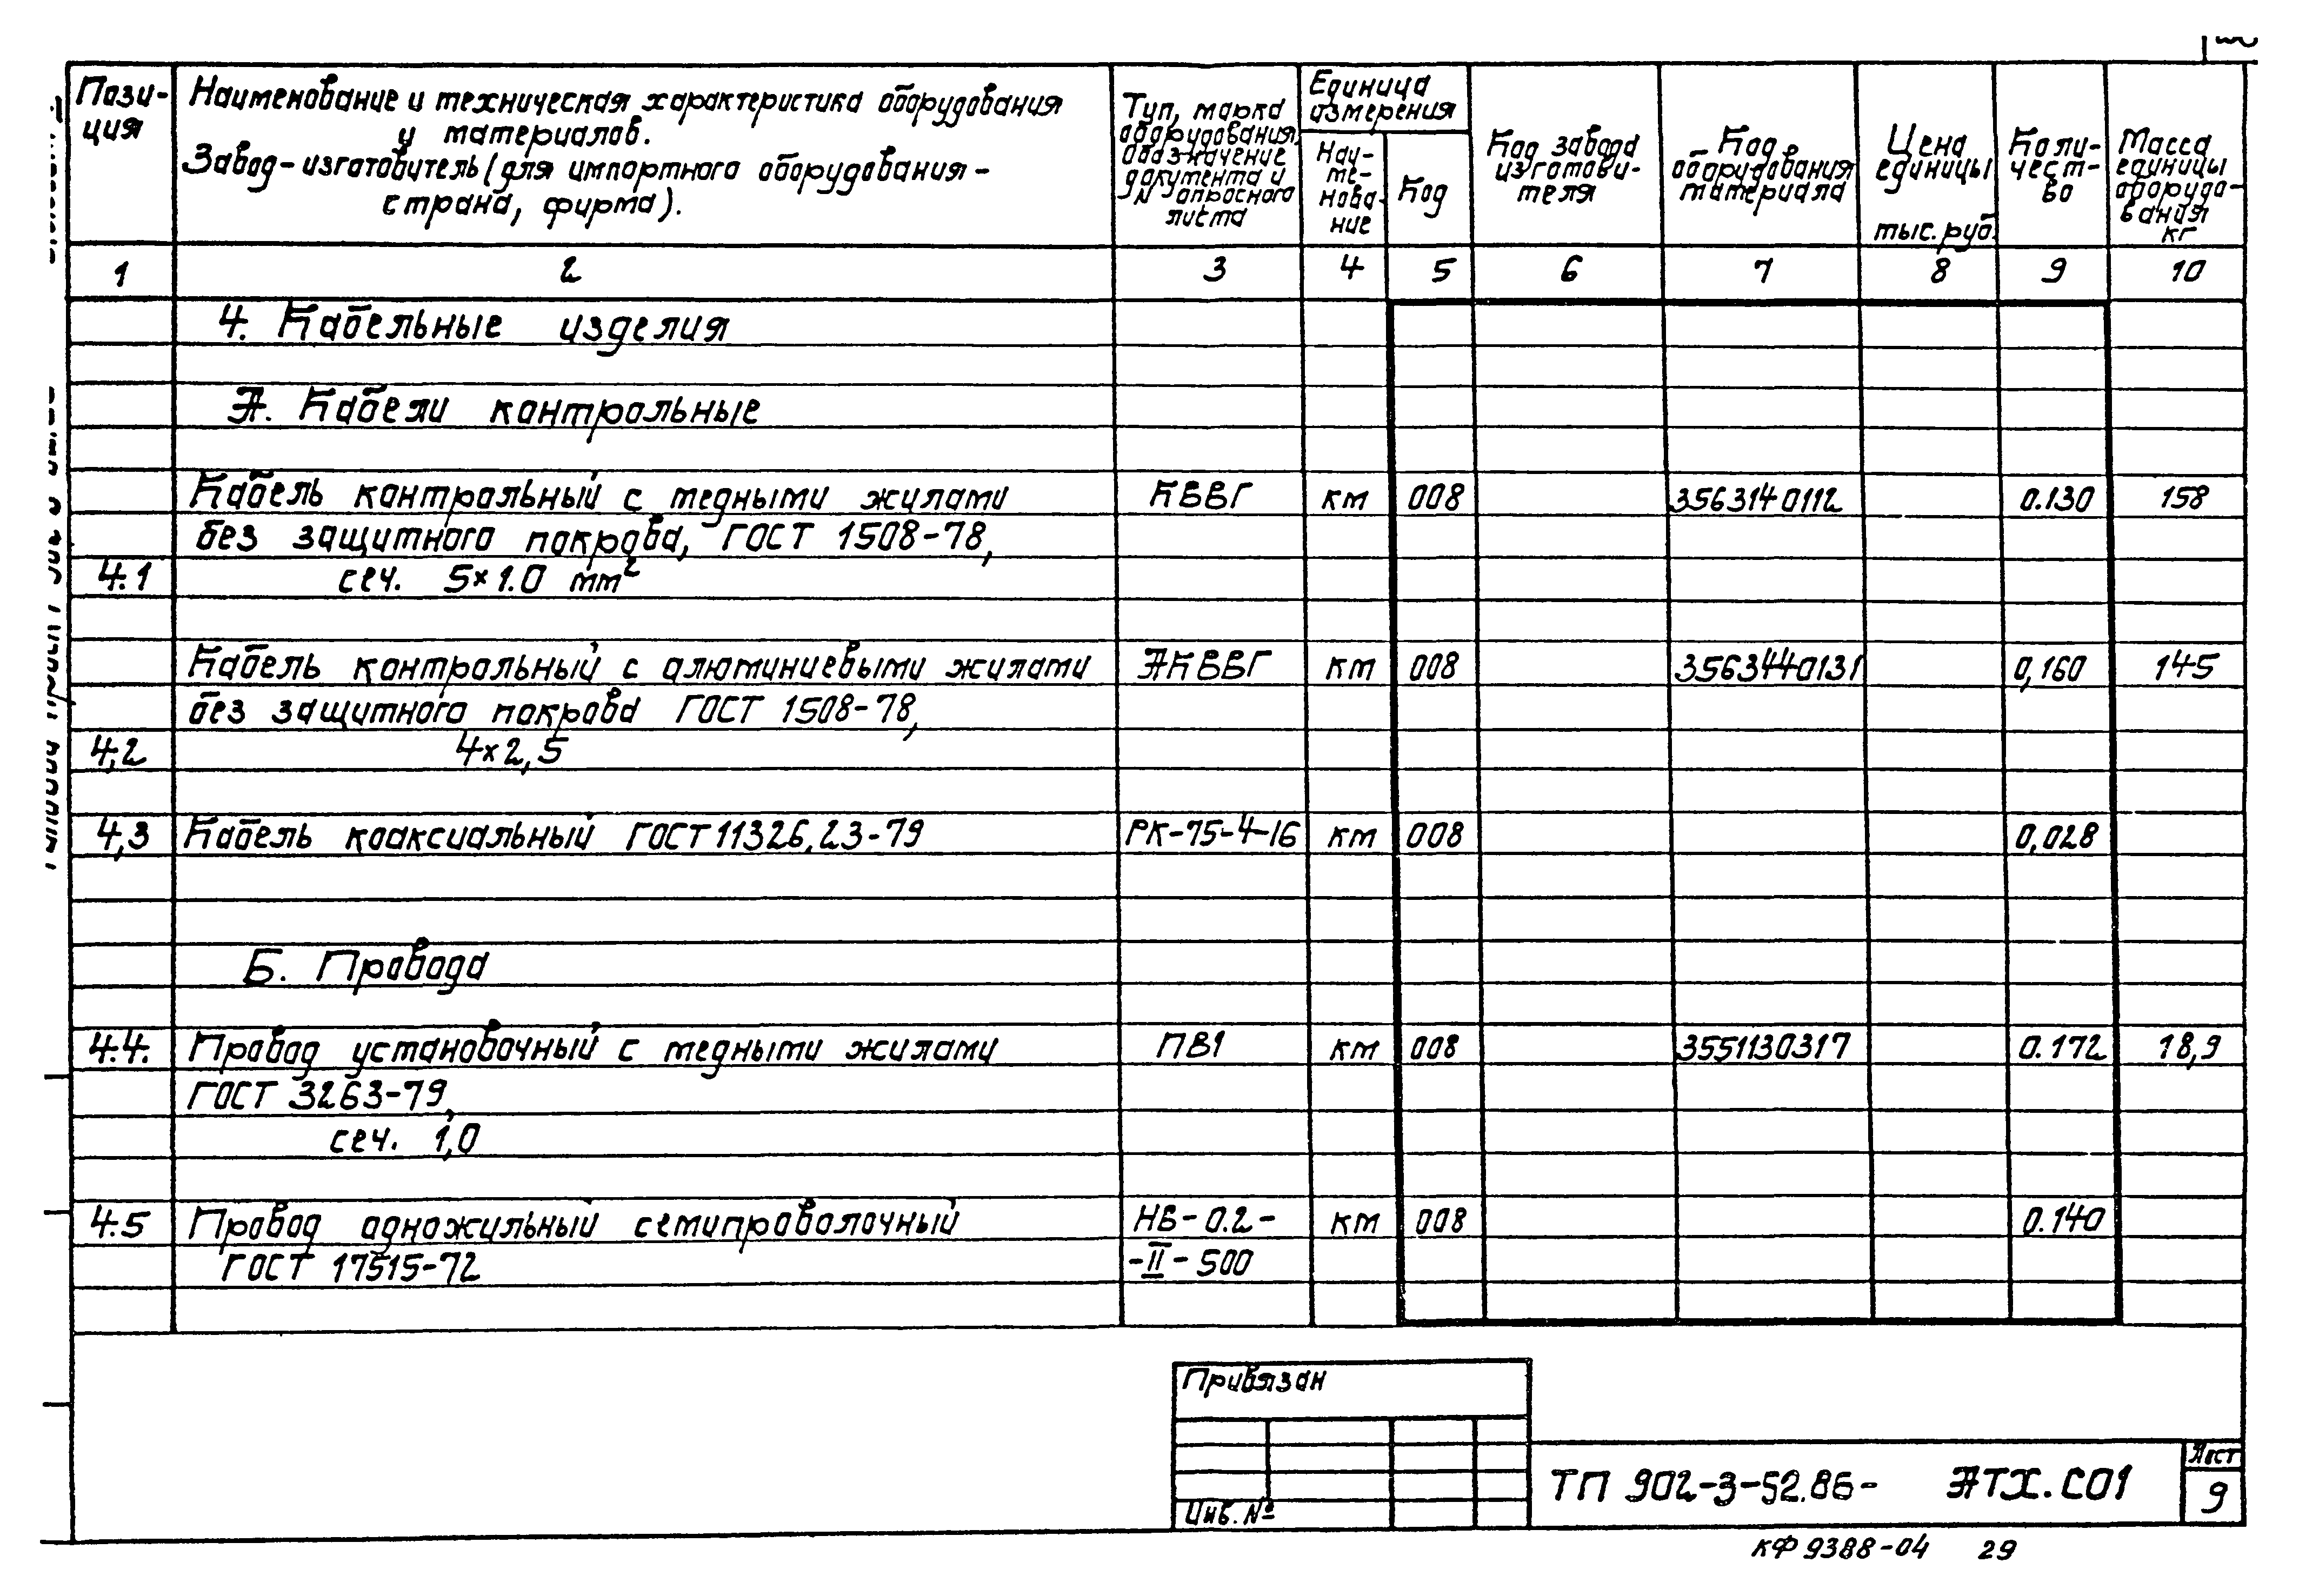 Пози-
ция
Наименование и техническая характеристика оборудования
и материалов.
Завод-изготовитель (для импортного оборудования -
страна, фирма).
Тип, марка
оборудования,
обозначение
документа и
№ опросного
листа
Единица
измерения
Наи-
ме-
нова-
ние
Код
Код завода
изготови-
теля
Код
оборудования
материала
Цена
единицы
тыс. руб.
Коли-
чест-
во
Масса
единицы
оборудо-
вания
кг
1 2 3 4 5 6 7 8 9 10
4. Кабельные изделия
А. Кабели контрольные
Кабель контрольный с медными жилами КВВГ км 008 3563140112 0.130 158
без защитного покрова, ГОСТ 1508-78,
4.1 сеч. 5×1.0 мм²
Кабель контрольный с алюминиевыми жилами АКВВГ км 008 3563440131 0,160 145
без защитного покрова ГОСТ 1508-78,
4,2 4×2,5
4,3 Кабель коаксиальный ГОСТ 11326.23-79 РК-75-4-16 км 008 0,028
Б. Провода
4.4. Провод установочный с медными жилами ПВ1 км 008 3551130317 0.172 18,9
ГОСТ 3263-79,
сеч. 1,0
4.5 Провод одножильный семипроволочный НВ-0.2- км 008 0.140
ГОСТ 17515-72 -II-500
Привязан
Инв. №
ТП 902-3-52.86- АТХ.СО1
Лист
9
КФ 9388-04 29